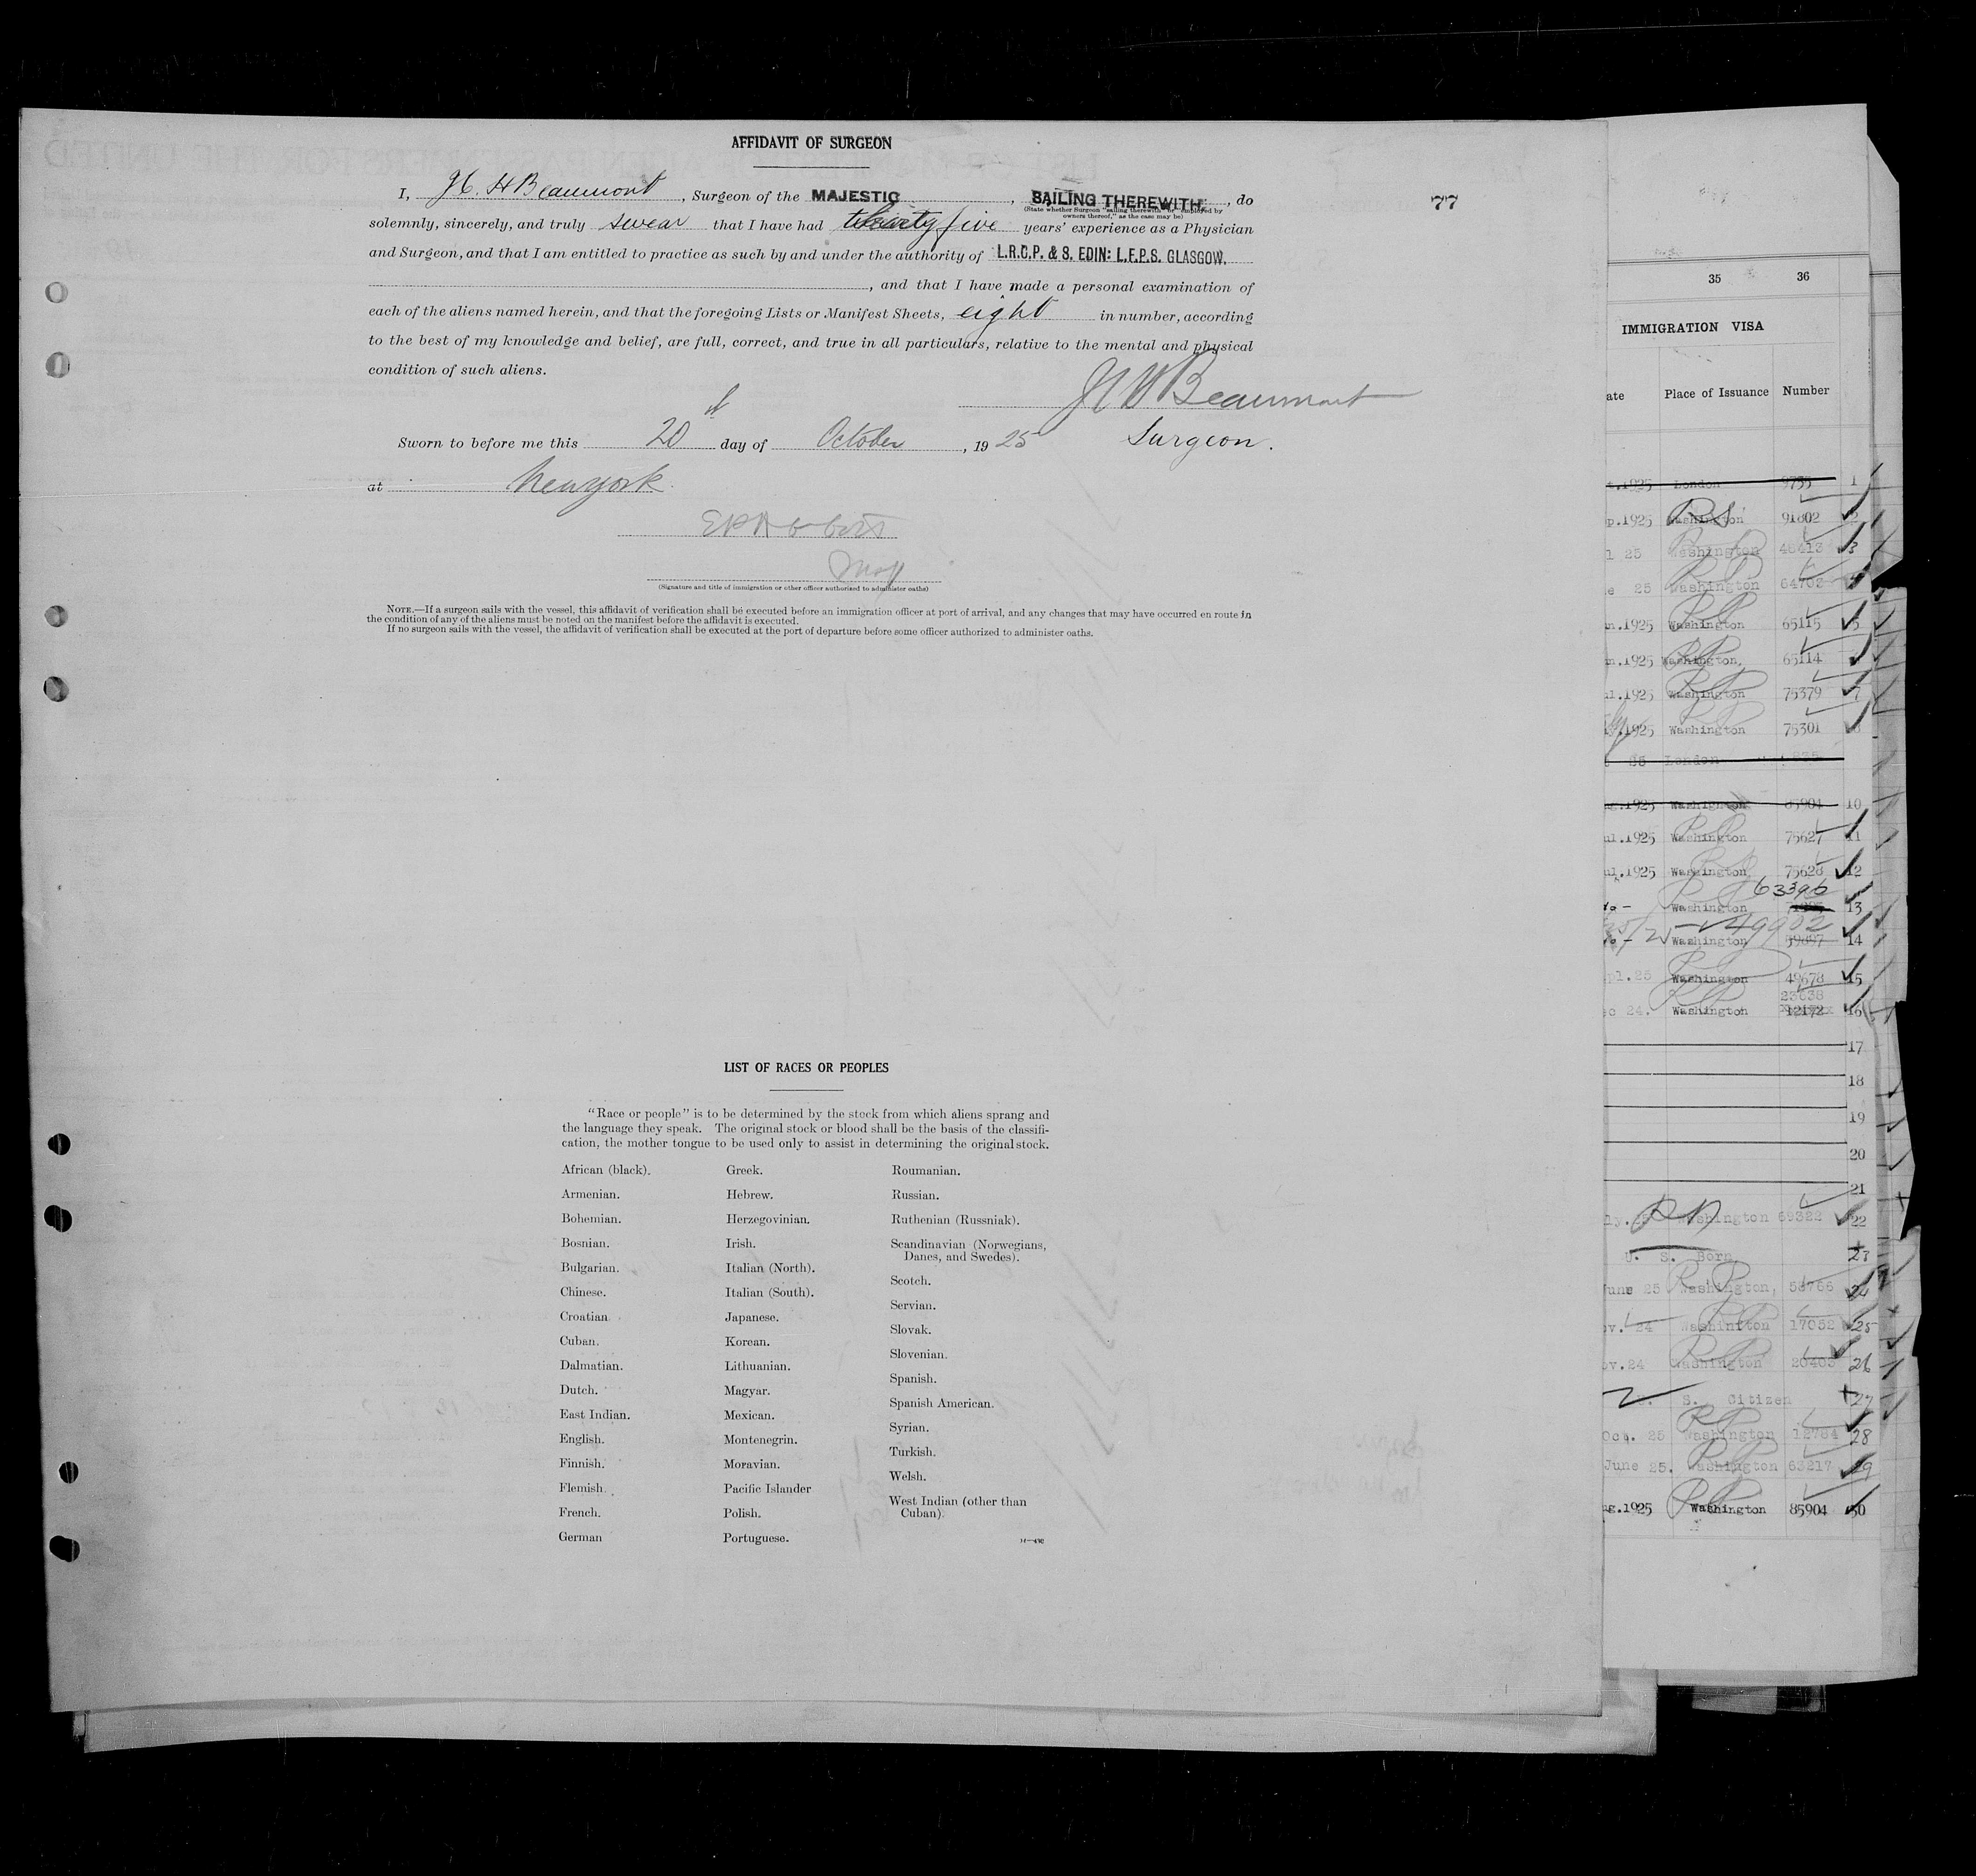 AFFIDAVIT OF SURGEON
I, J.C. H Beaumont, Surgeon of the MAJESTIC, SAILING THEREWITH, do
(State whether Surgeon "sailing therewith" or "employed by
owners thereof," as the case may be)
77
solemnly, sincerely, and truly swear that I have had five years' experience as a Physician
and Surgeon, and that I am entitled to practice as such by and under the authority of L.R.C.P. & S. EDIN: L.F.P.S. GLASGOW.
, and that I have made a personal examination of
each of the aliens named herein, and that the foregoing Lists or Manifest Sheets, eight in number, according
to the best of my knowledge and belief, are full, correct, and true in all particulars, relative to the mental and physical
condition of such aliens.
Beaumont
Sworn to before me this 20th day of October, 1925 Surgeon.
at New york
(Signature and title of immigration or other officer authorized to administer oaths)
NOTE.—If a surgeon sails with the vessel, this affidavit of verification shall be executed before an immigration officer at port of arrival, and any changes that may have occurred en route in
the condition of any of the aliens must be noted on the manifest before the affidavit is executed.
If no surgeon sails with the vessel, the affidavit of verification shall be executed at the port of departure before some officer authorized to administer oaths.
LIST OF RACES OR PEOPLES
"Race or people" is to be determined by the stock from which aliens sprang and
the language they speak. The original stock or blood shall be the basis of the classifi-
cation, the mother tongue to be used only to assist in determining the original stock.
African (black).
Armenian.
Bohemian.
Bosnian.
Bulgarian.
Chinese.
Croatian
Cuban.
Dalmatian.
Dutch.
East Indian.
English.
Finnish.
Flemish.
French.
German
Greek.
Hebrew.
Herzegovinian.
Irish.
Italian (North).
Italian (South).
Japanese.
Korean.
Lithuanian.
Magyar.
Mexican.
Montenegrin.
Moravian.
Pacific Islander
Polish.
Portuguese.
Roumanian.
Russian.
Ruthenian (Russniak).
Scandinavian (Norwegians,
Danes, and Swedes).
Scotch.
Servian.
Slovak.
Slovenian.
Spanish.
Spanish American.
Syrian.
Turkish.
Welsh.
West Indian (other than
Cuban).
35 36
IMMIGRATION VISA
ate Place of Issuance Number
.1925 London 9735 1
p.1925 Washington 91802 2
l 25 Washington 48413 3
e 25 Washington 64703
n.1925 Washington 65115 5
n.1925 Washington, 65114
l.1925 Washington 75379 7
.1925 Washington 75301
25 London
g.1925 Washington 85904 10
ul.1925 Washington 75627 11
ul.1925 Washington 75628 12
63396
Washington 13
49902
Washington 39697 14
pl.25 Washington 49678 15
23638
c 24. Washington 12172 16
17
18
19
20
21
ly.25 Washington 69322 22
U. S. Born 23
June 25 Washington, 58766 24
ov. 24 Washinton 17052 25
ov.24 Washington 20403 26
S. Citizen 27
Oct. 25 Washington 12784 28
June 25. Washington 63217 29
g.1925 Washington 85904 30